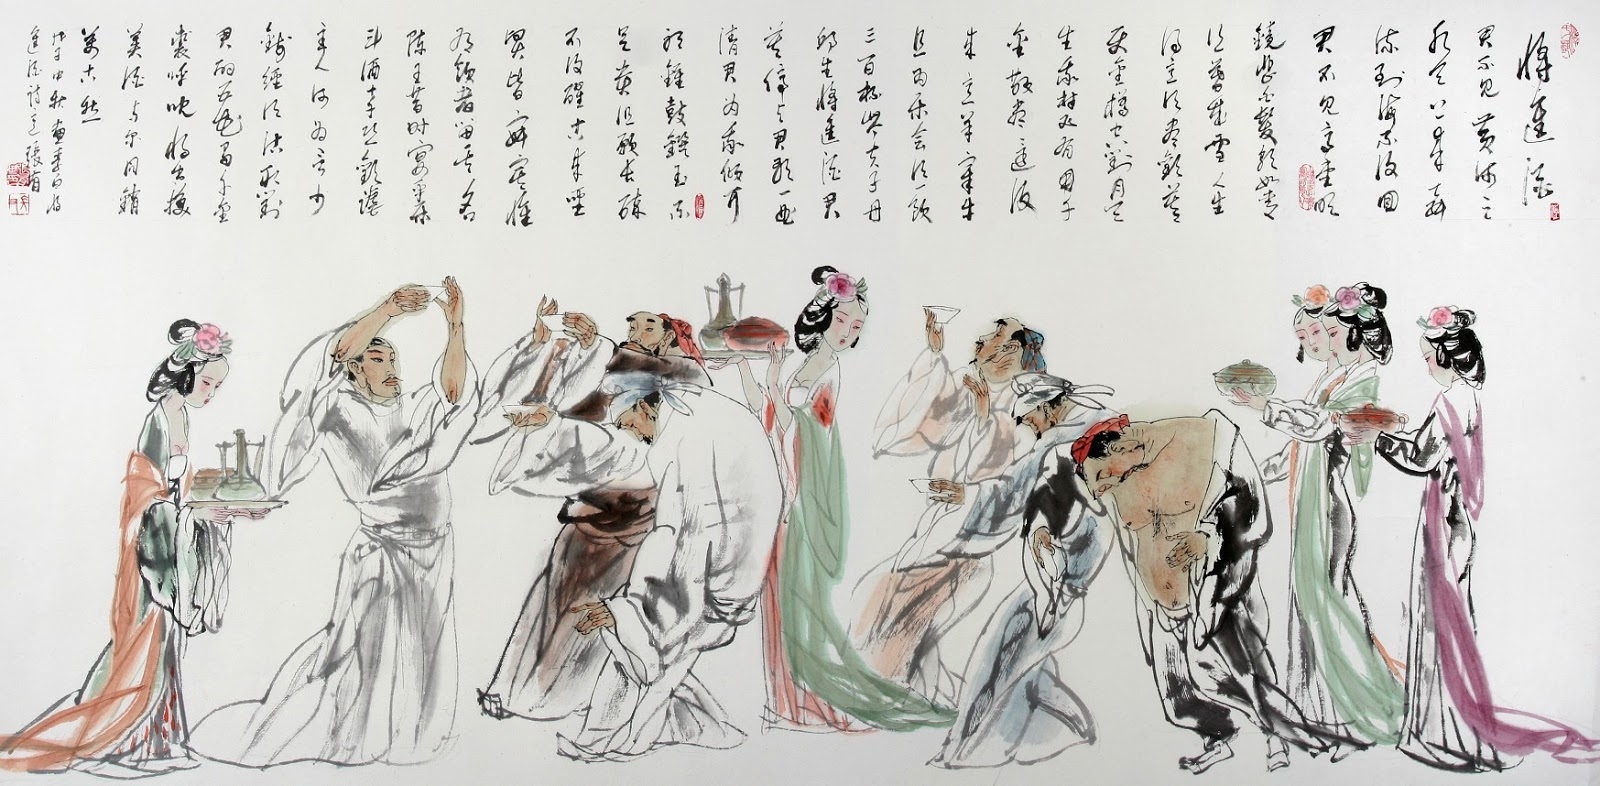 將進酒
君不見黄河之
水天上来奔
流到海不復回
君不見高堂明
鏡悲白髮朝如青
丝暮成雪人生
得意须尽歡莫
使金樽空对月天
生我材必有用千
金散尽還復
来烹羊宰牛
且为乐会须一飲
三百杯岑夫子丹
邱生將進酒君
莫停与君歌一曲
请君为我倾耳
听鐘鼓饌玉不
足貴但願长醉
不復醒古来聖
賢皆寂寞惟
有飲者留其名
陈王昔时宴平樂
斗酒十千恣歡謔
主人何为言少
錢經须沽取对
君酌五花馬千金
裘呼兒將出換
美酒与尔同銷
萬古愁
戊子中秋画李白將
進酒诗意張省